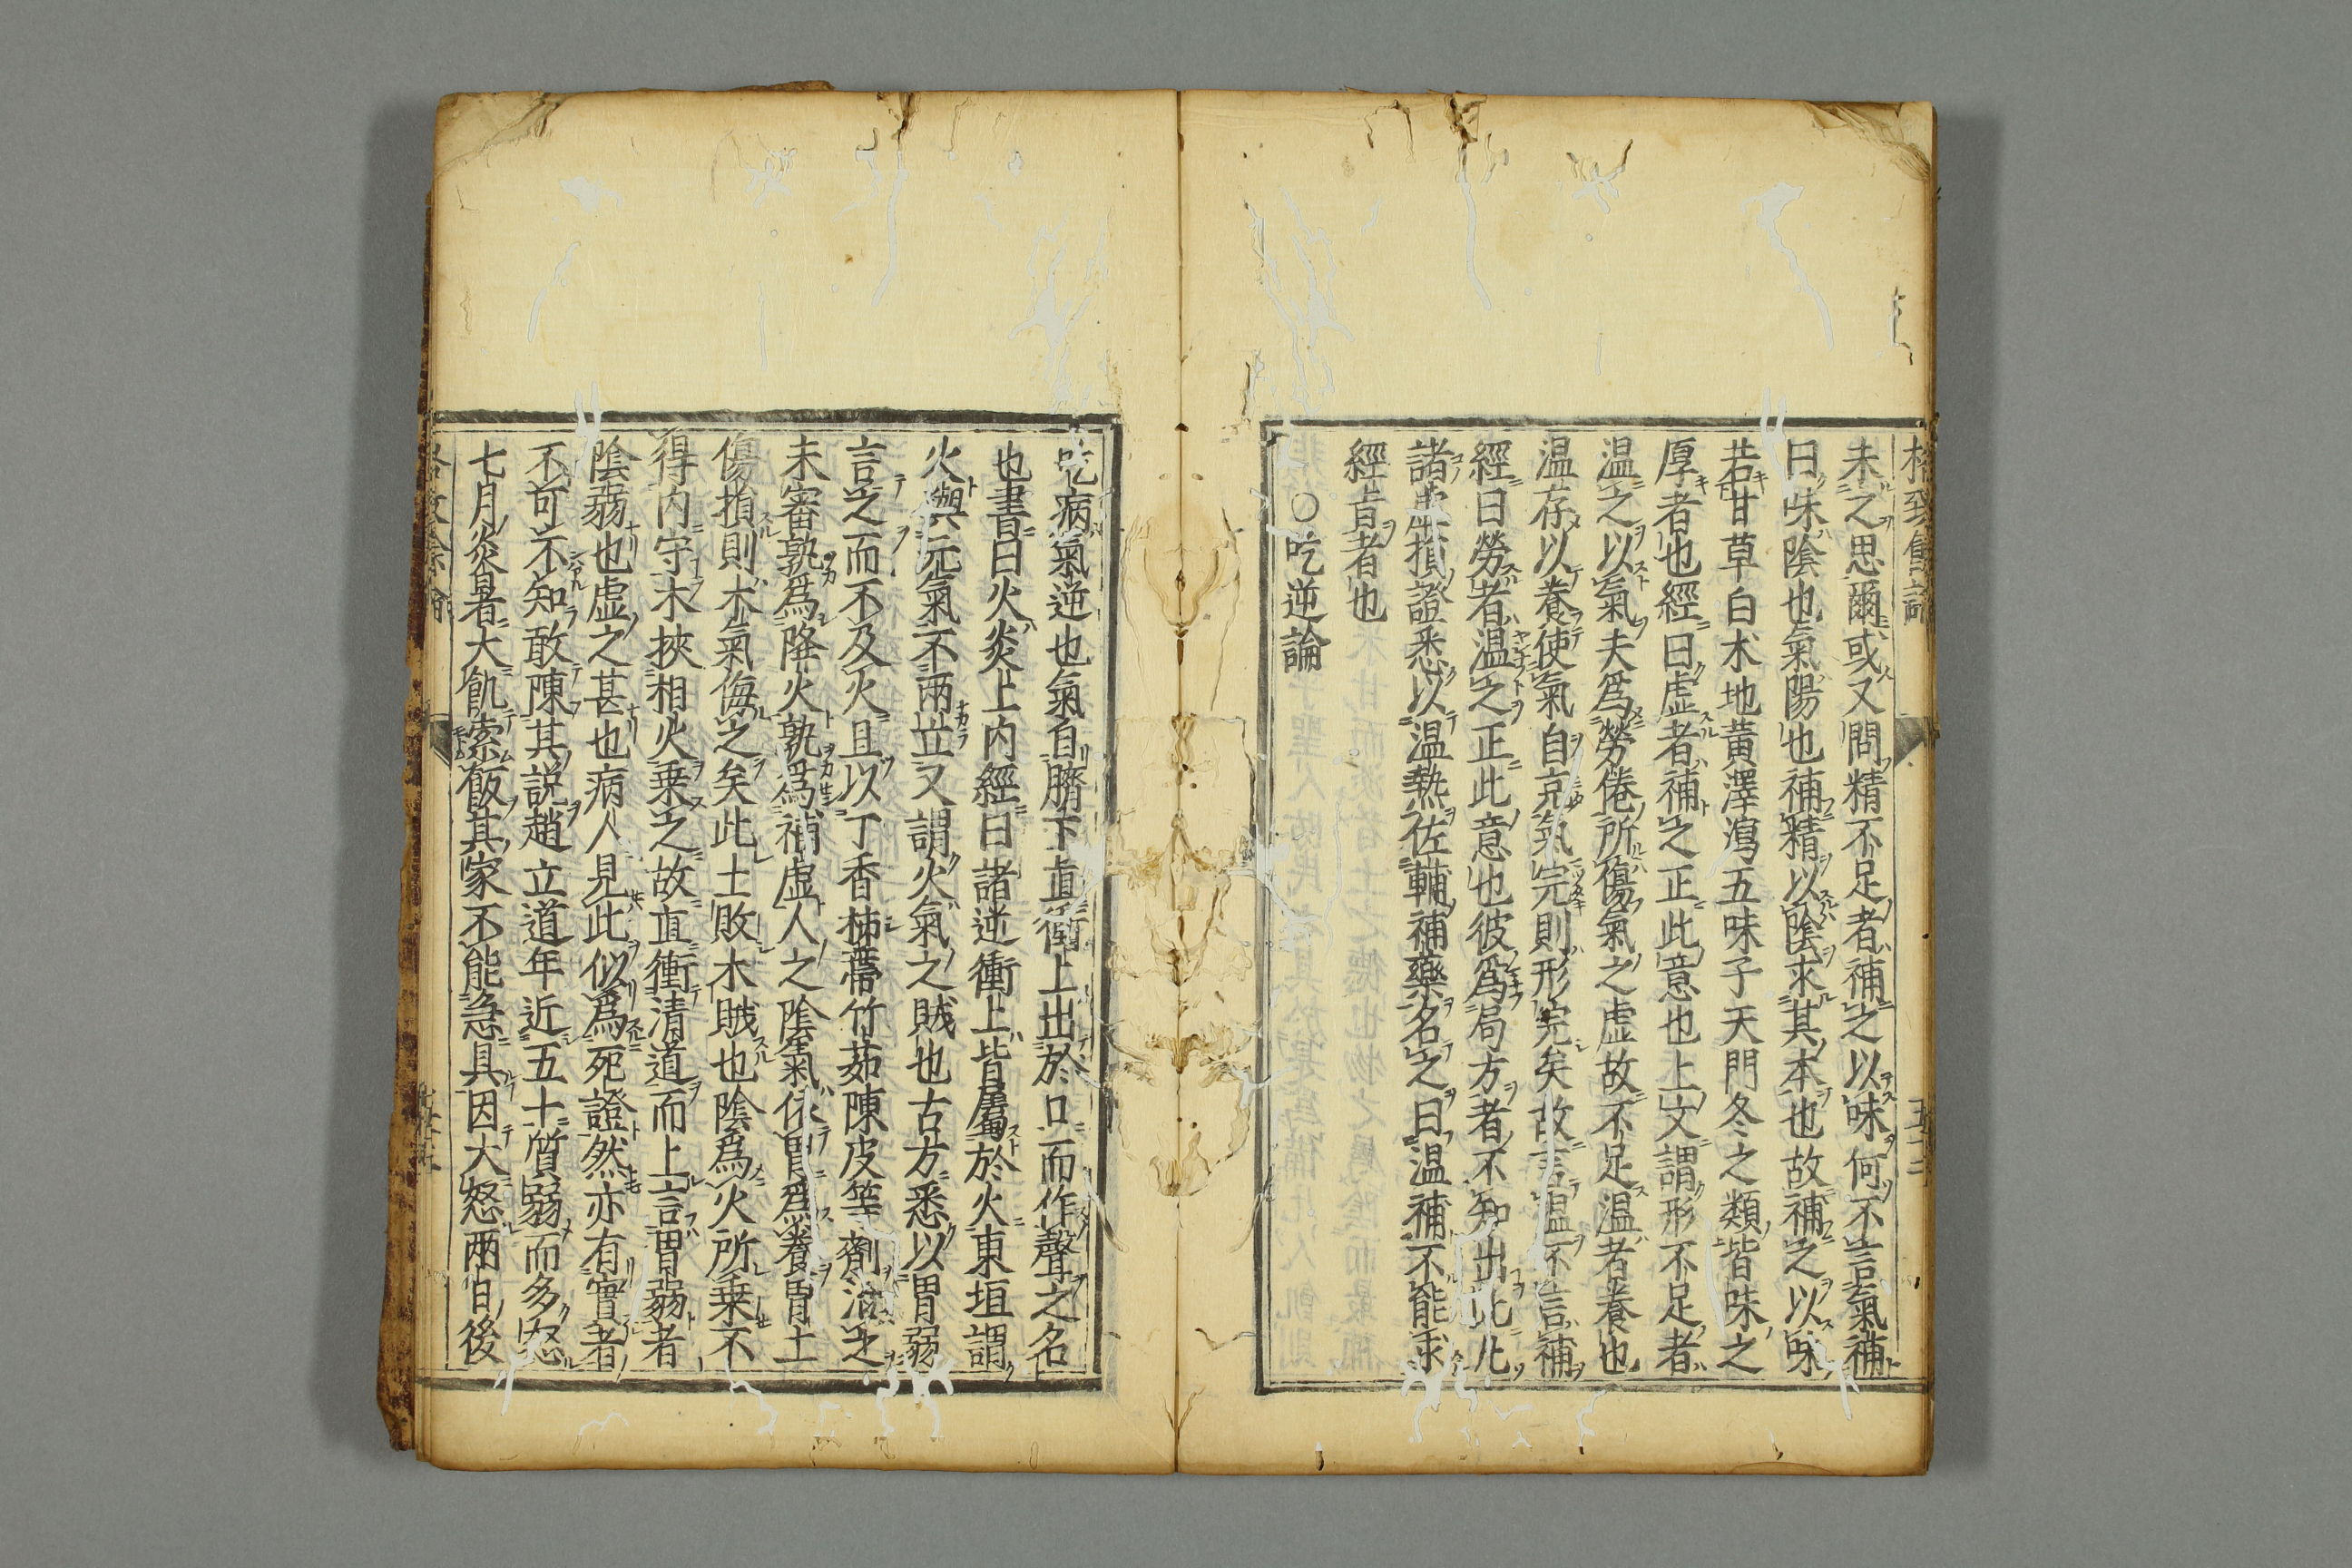 未之思爾或又問精不足者補之以味何不言氣補
曰味陰也氣陽也補精以陰求其本也故補之以味
若甘草白朮地黃澤瀉五味子天門冬之類皆味之
厚者也經曰虛者補之正此意也上文謂形不足者
温之以氣夫爲勞倦所傷氣之虛故不足温者養也
温存以養使氣自充氣完則形完矣故言温不言補
經曰勞者温之正此意也彼爲局方者不知出此凡
諸虛損證悉以温熱佐輔補藥名之曰温補不能求
經旨者也
○吃逆論
吃病氣逆也氣自臍下直衝上出於口而作聲之名
也書曰火炎上内經曰諸逆衝上皆屬於火東垣謂
火與元氣不兩立又謂火氣之賊也古方悉以胃弱
言之而不及火且以丁香柿蔕竹茹陳皮等劑治之
未審孰爲降火孰爲補虛人之陰氣依胃爲養胃土
傷損則木氣侮之矣此土敗木賊也陰爲火所乗不
得内守木挾相火乗之故直衝清道而上言胃弱者
陰弱也虛之甚也病人見此似爲死證然亦有實者
不可不知敢陳其説趙立道年近五十質弱而多怒
七月炎暑大飢索飯其家不能急具因大怒兩日後